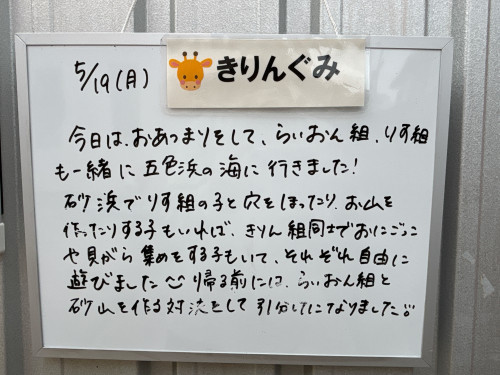 5/19(月)
きりんぐみ
今日は、おあつまりをして、らいおん組、りす組
も一緒に五色浜の海に行きました!
砂浜でりす組の子と穴をほったり、お山を
作ったりする子もいれば、きりん組同士でおにごっこ
や貝がら集めをする子もいて、それぞれ自由に
遊びました 帰る前には、らいおん組と
砂山を作る対決をして引分けになりました